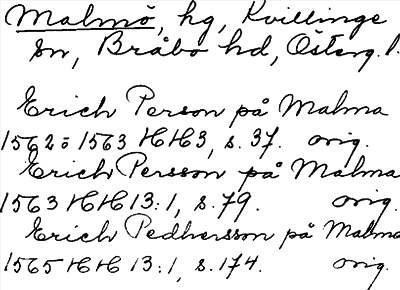 Malmö, hg, Kvillinge
sn, Bråbo hd, Österg. l.
Erich Person på Malma
1562 o 1563 HH3, s. 37. orig.
Erich Persson på Malma
1563 HH 13:1, s. 79. orig.
Erich Pedhersson på Malma
1565 HH 13:1, s. 174. orig.